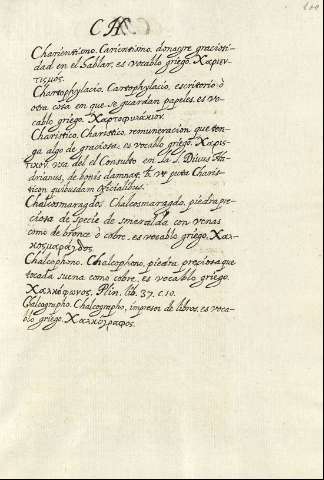 CH
Charientismo. Carientismo. donayre graciosi-
dad en el hablar, es vocablo griego. Χαριεν-
τισμος.
Chartophylacio. Cartophylacio, escriterio ò
otra cosa en que se guardan papeles. es vo-
cablo griego. Χαρτοφυλάκιον.
Charistico. Charistico, remuneracion que ten-
ga algo de graciosa. es vocablo griego. Χαρισ-
τικον. usa del el Consulto en la l. Divus Ha-
drianus, de bonis damnat. ut puta Charis-
ticon quibusdam officialibus.
Chalcosmaragdos. Chalcosmaragdo, piedra pre-
ciosa de specie de smeralda con venas
como de bronce ò cobre, es vocablo griego. Χαλ-
κοσμαράγδος.
Chalcophono. Chalcophono, piedra preciosa que
tocada suena como cobre, es vocablo griego.
Χαλκόφωνος. Plin. lib. 37. c. 10.
Chalcographo. Chalcographo, impresor de libros. es voca-
blo griego. Χαλκόγραφος.